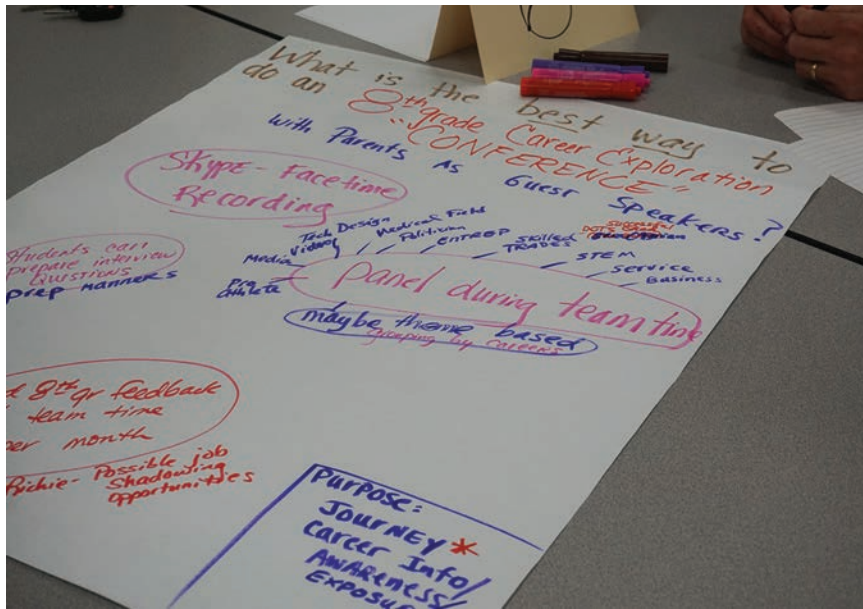 What is the best way to
do an 8th grade Career Exploration
"CONFERENCE"
with Parents As Guest Speakers?
Skype - Facetime
Recording
Students can
prepare interview
Questions
prep manners
Media
Tech Design
Video
Medical Field
Politician
ENTREP
Skilled
TRADES
successful
STEM
Service
Business
Pro
athlete
panel during team time
maybe theme based
grouping by careers
8th gr feedback
team time
per month
Richie - Possible job
Shadowing
Opportunities
Purpose:
JOURNEY *
Career Info/
AWAReness/